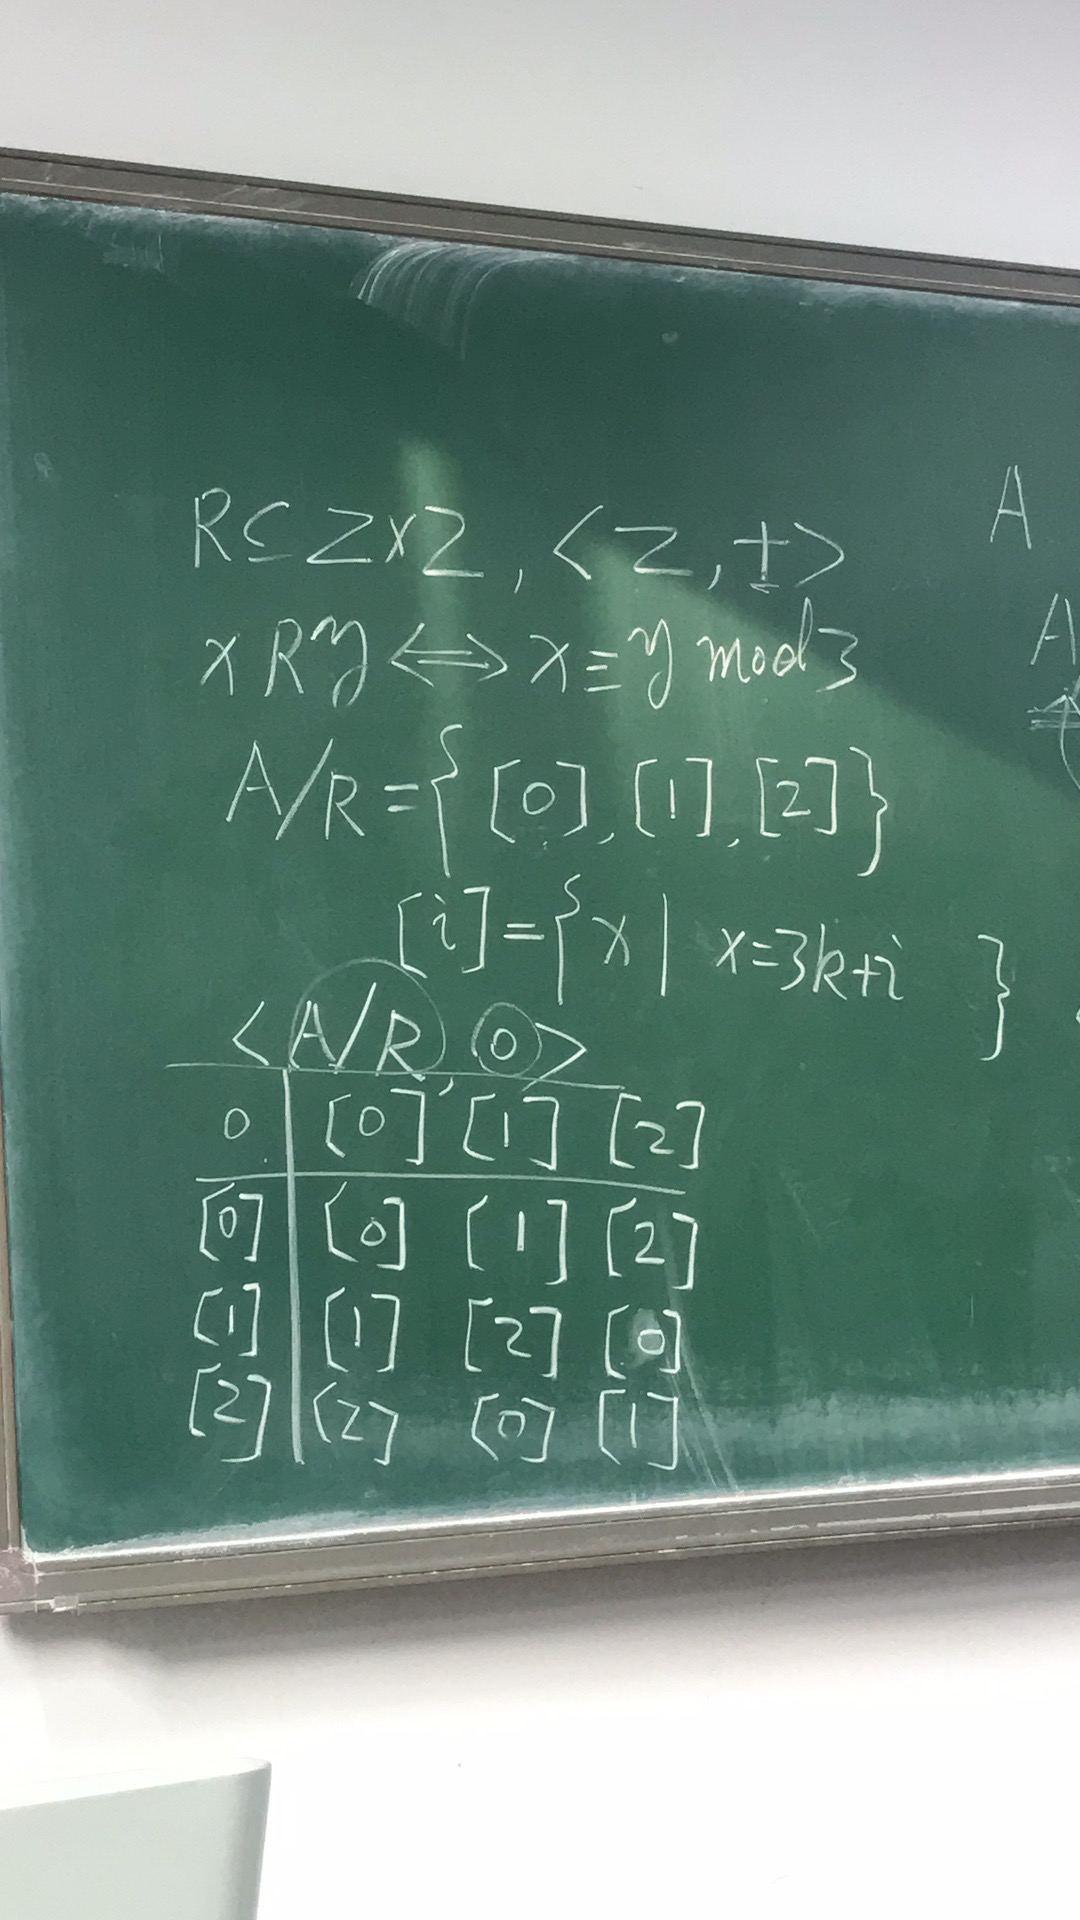 R⊆Z×Z, <Z, +>
xRy⟺x≡y mod 3
A/R={[0],[1],[2]}
[i]={x| x=3k+i }
<A/R, o>
o [0] [1] [2]
[0] [0] [1] [2]
[1] [1] [2] [0]
[2] [2] [0] [1]
A
A